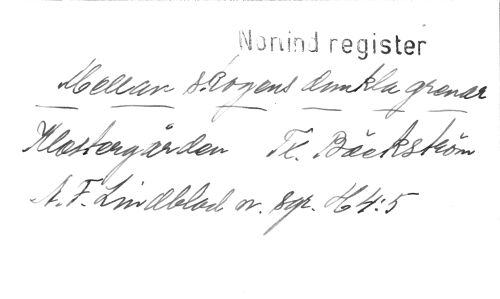 Nonind register
Mellan skogens dunkla grenar
Klostergården Tk. Bäckström
A. F. Lindblad n. sgr. H 4:5